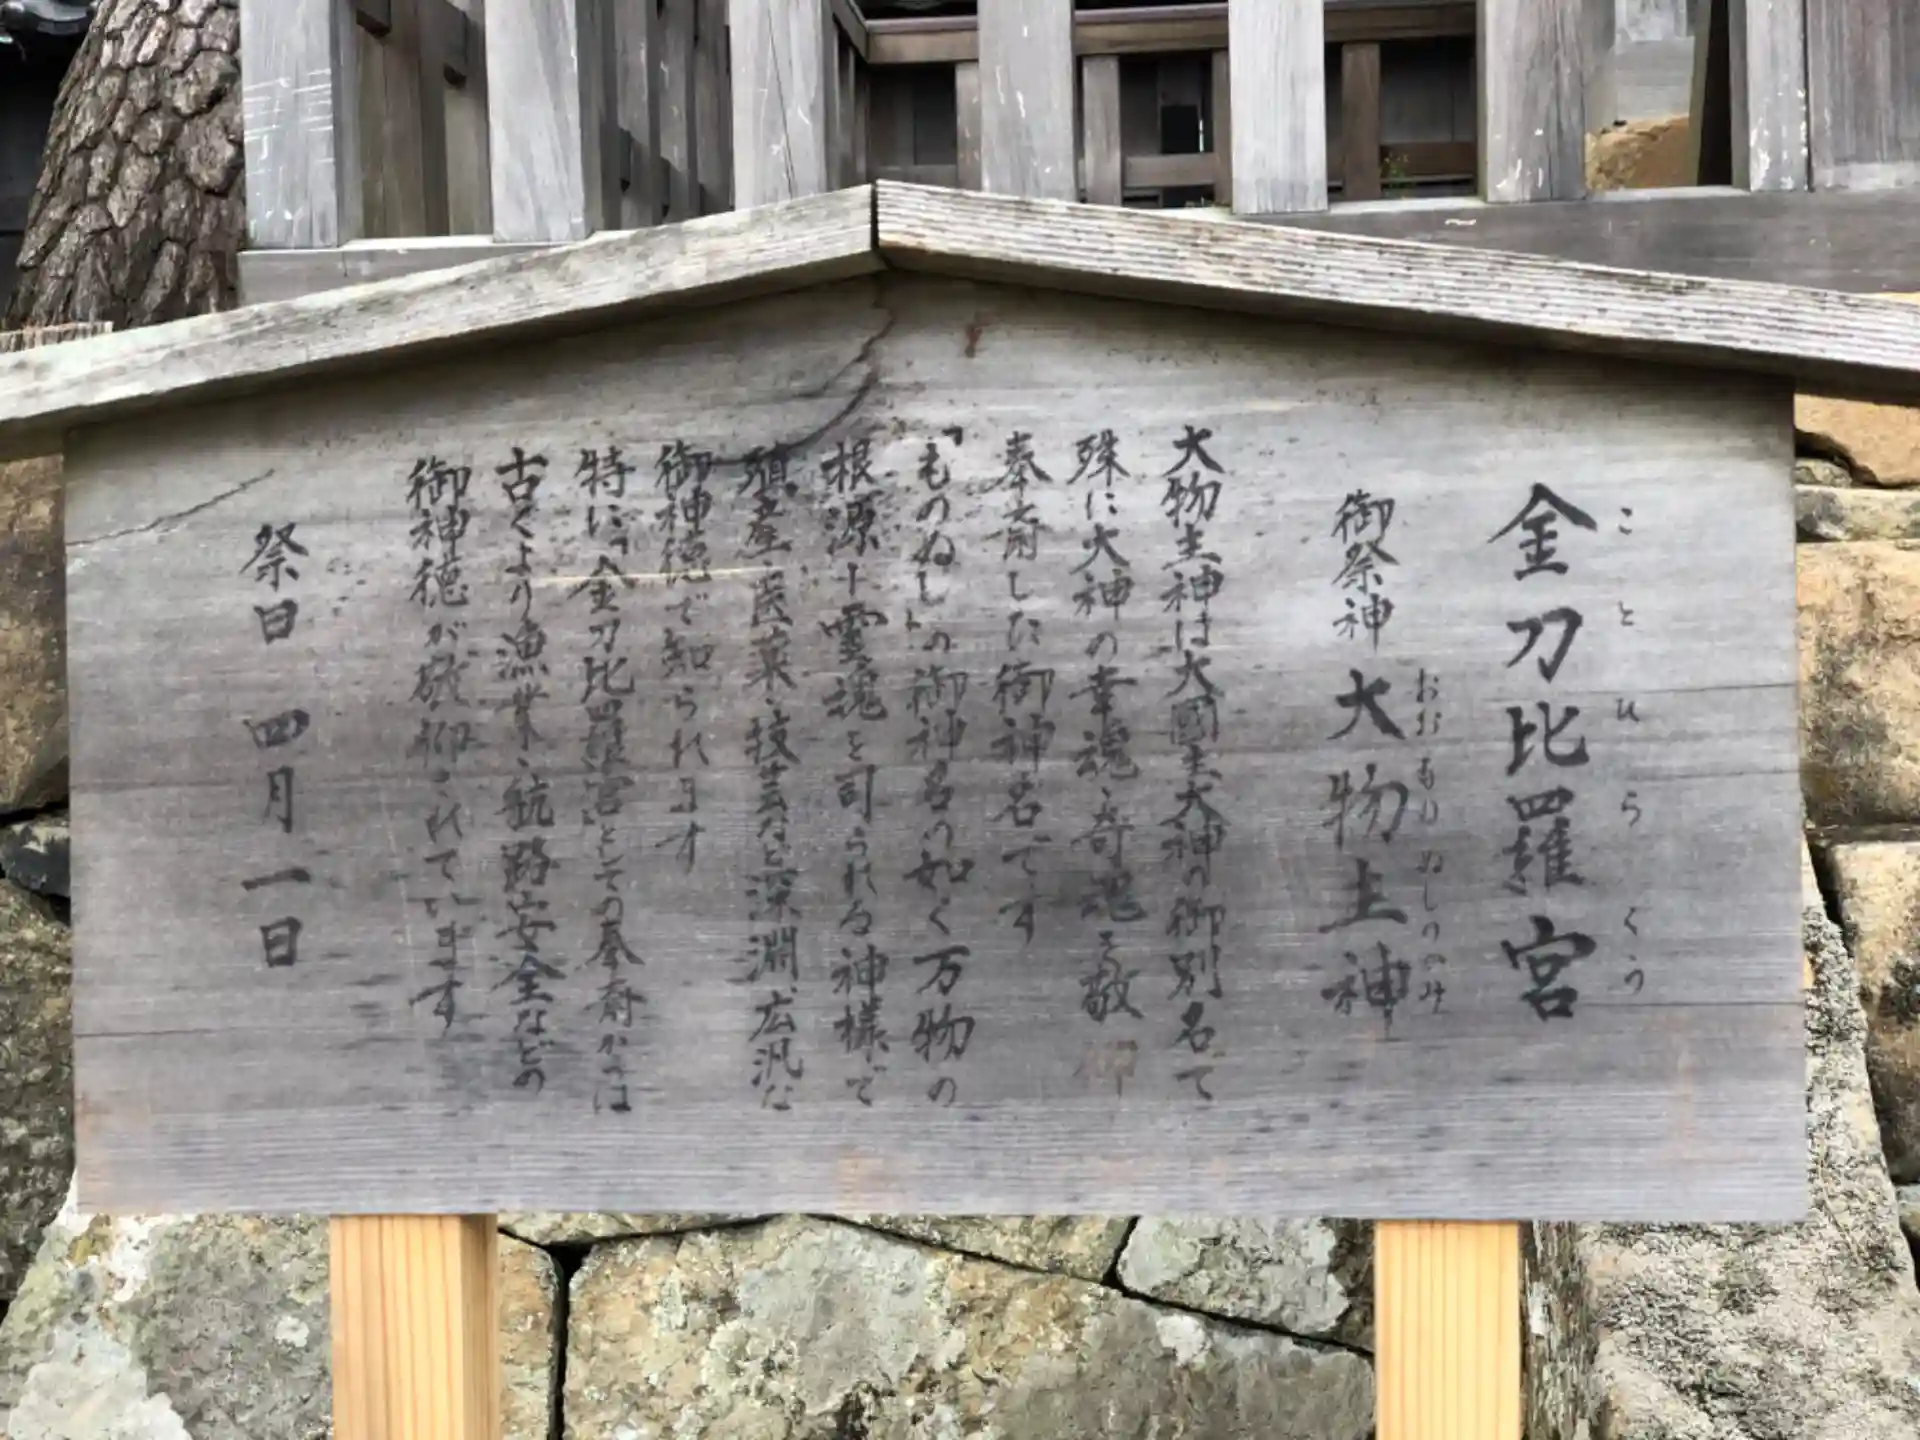 金刀比羅宮
ことひらぐう
御祭神 大物主神
おおものぬしのかみ
大物主神は大國主大神の御別名で
殊に大神の幸魂、奇魂を敬仰
奉斎した御神名です
「ものぬし」の御神名の如く万物の
根源十霊魂を司られる神様で
殖産、医薬、技芸など深淵、広汎な
御神徳で知られます
特に「金刀比羅宮」としての奉斎からは
古くより漁業、航路安全などの
御神徳が敬仰されています
祭日 四月一日